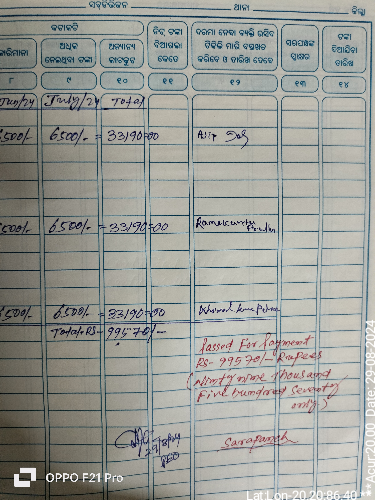 ସବ୍‌ଡିଭିଜନ ଥାନା ଜିଲ୍ଲା
କଟାକଟି
ଜୋରିମାନା
ଅଧିକ ନେଇଥିବା ଟଙ୍କା
ଅନ୍ୟାନ୍ୟ କାଟକୁଟ
ନିଟ୍ ଟଙ୍କା ଦିଆଗଲା କେତେ
ଦରମା ନେବା ବ୍ୟକ୍ତି ରସିଦ ଟିକଟି ମାରି ଦସ୍ତଖତ କରିବେ ଓ ତାରିଖ ଦେବେ
ସରପଞ୍ଚଙ୍କ ସ୍ୱାକ୍ଷର
ଟଙ୍କା ଦିଆଯିବା ତାରିଖ
୮ ୯ ୧୦ ୧୧ ୧୨ ୧୩ ୧୪
Jun/24 July/24 Total
6500/- 6500/- = 33190=00
6500/- 6500/- = 33190=00
6500/- 6500/- = 33190=00
Total RS- 99570/-
Passed For Payment
Rs- 99570/- Rupees
(Ninty nine thousand
Five hundred seventy
only.)
Sarapanch
PEO
OPPO F21 Pro
Lat Lon-20.20,86.40
**Acur*20.00 Date: 29-08-2024